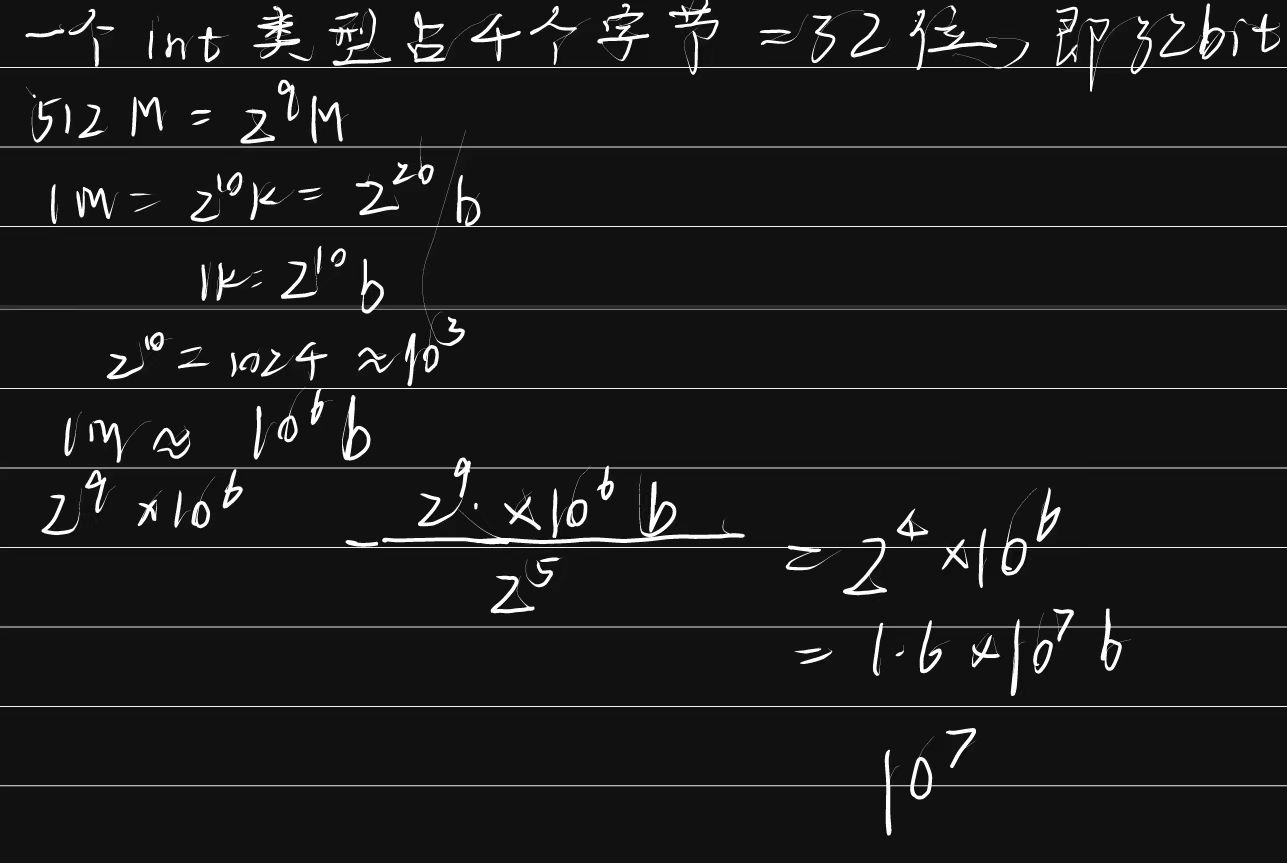 一个 int 类型占4个字节 =32位, 即32bit
512 M = 2⁹M
1M = 2¹⁰K = 2²⁰ b
1K = 2¹⁰ b
2¹⁰ = 1024 ≈ 10³
1M ≈ 10⁶ b
2⁹ ×10⁶ (2⁹ · ×10⁶ b) / 2⁵ = 2⁴ ×10⁶
= 1.6 ×10⁷ b
10⁷